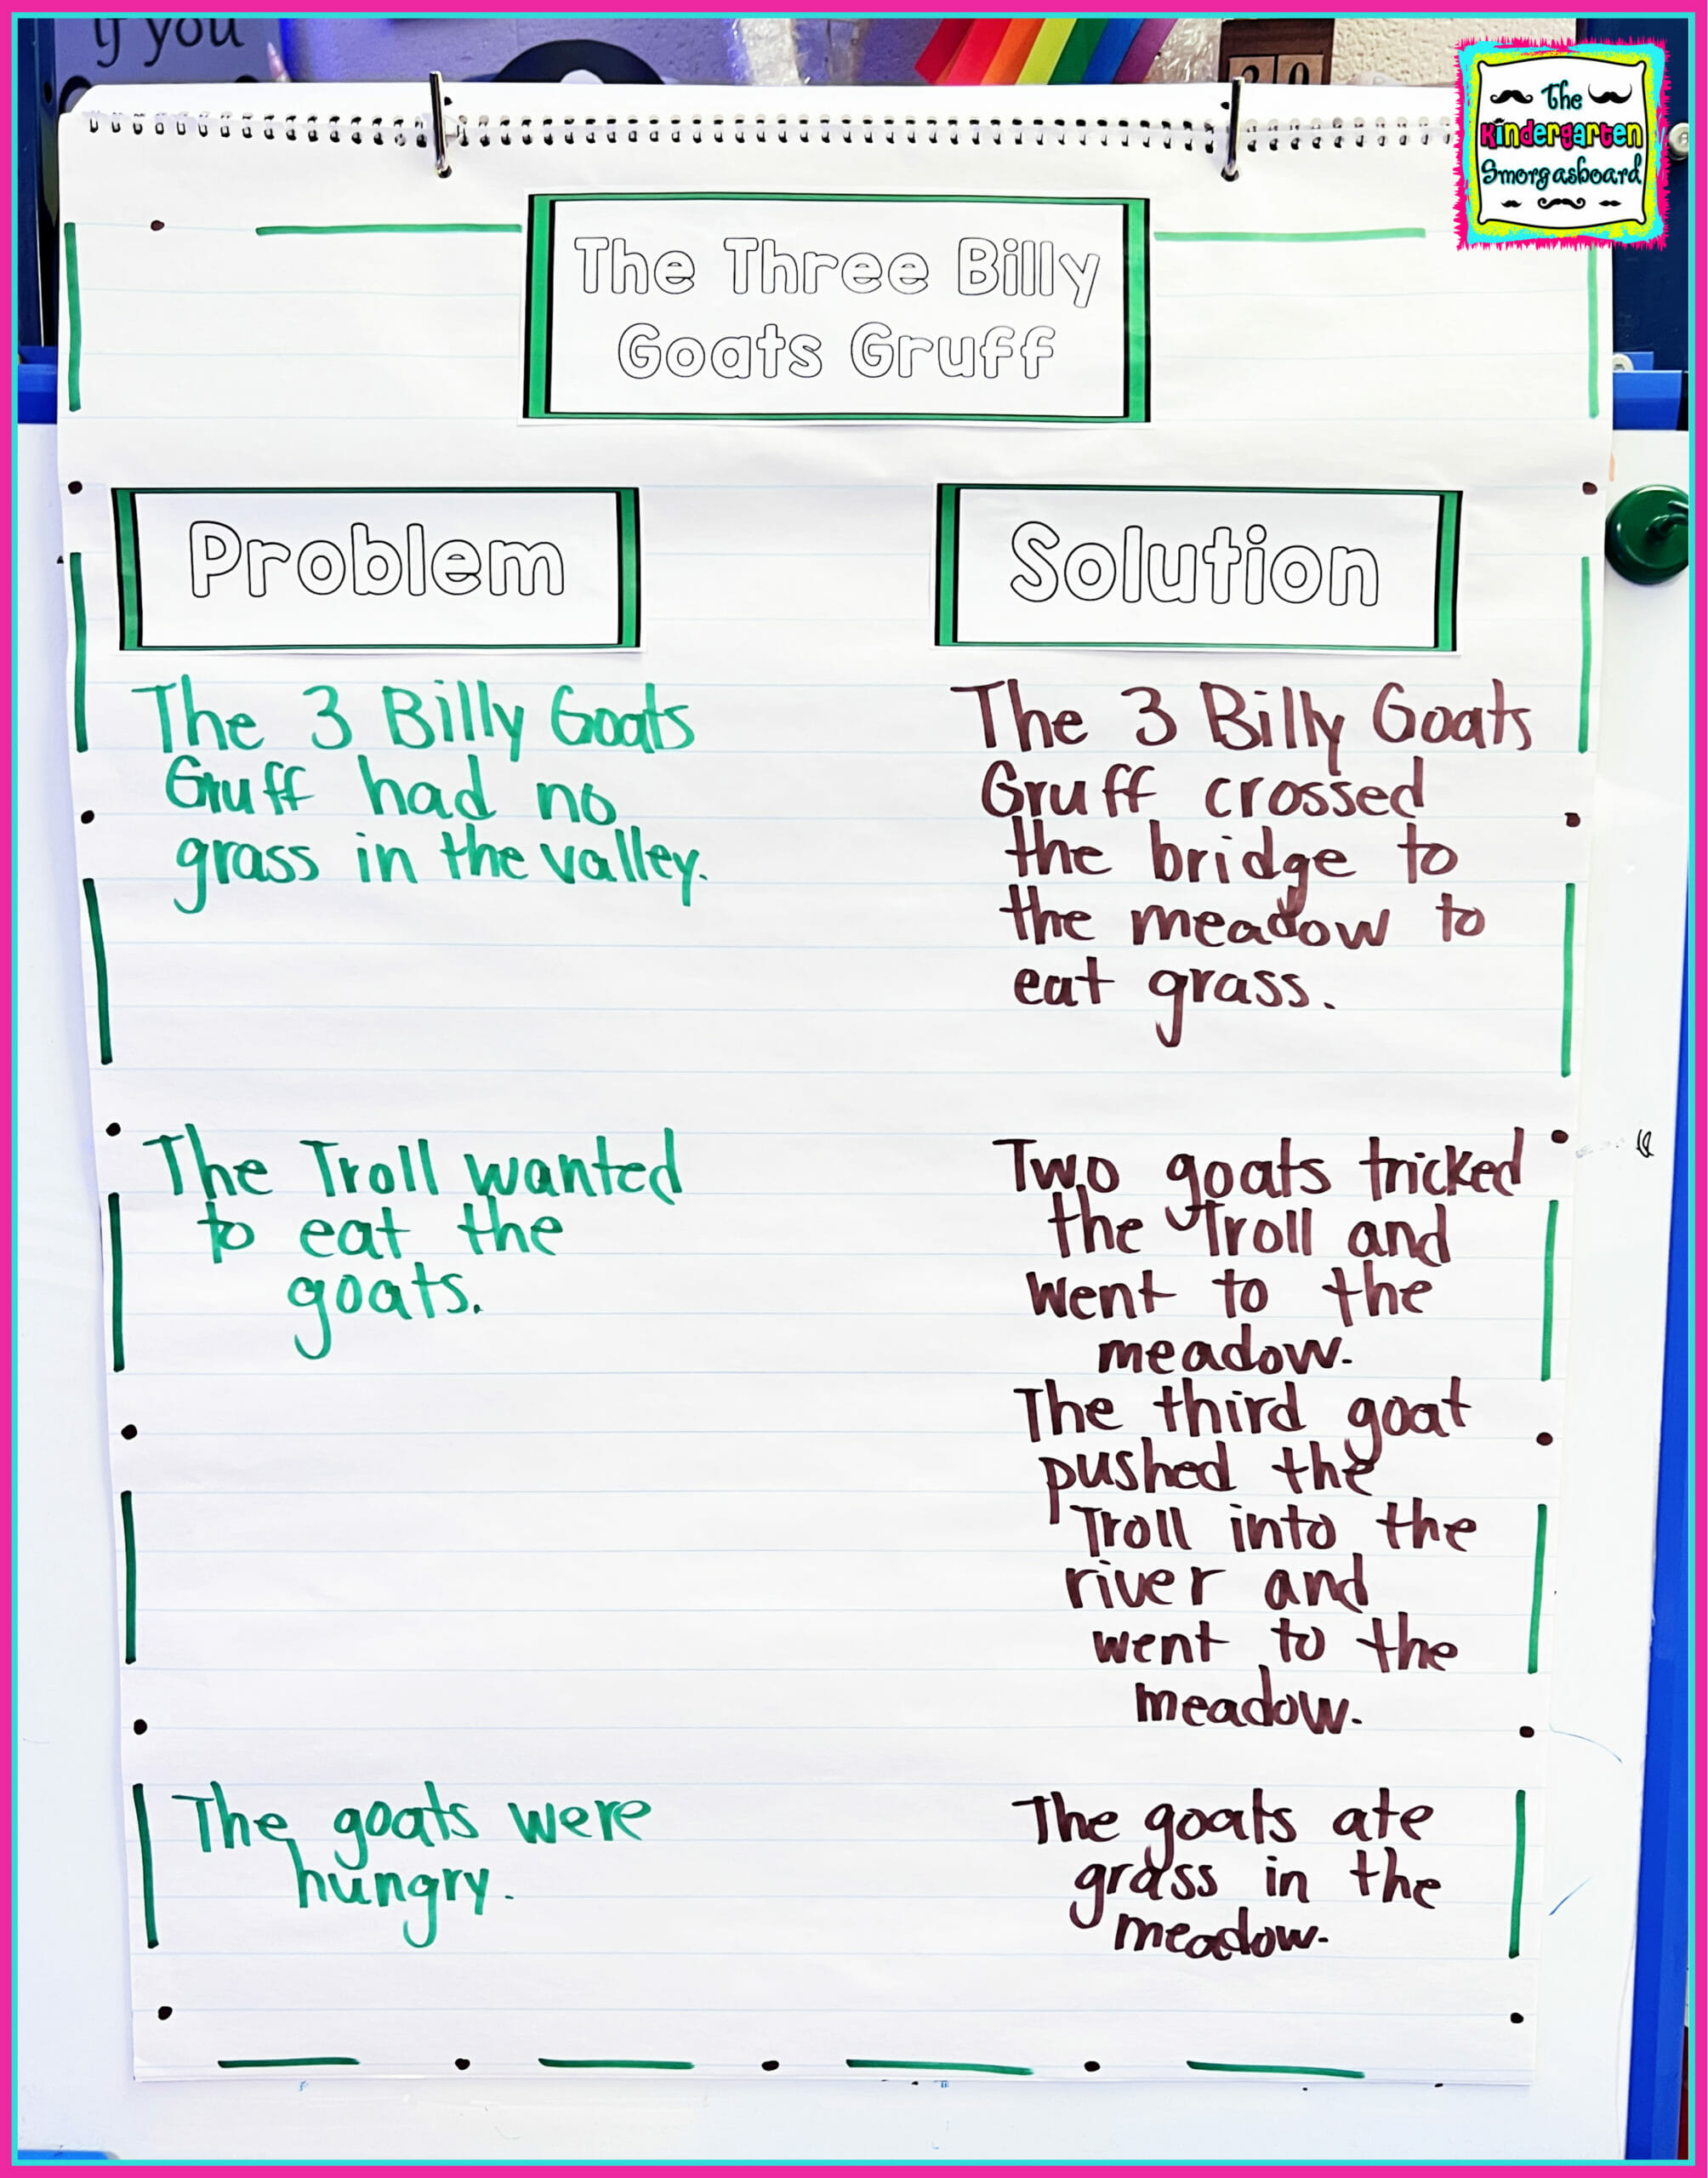 if you
20
The
Kindergarten
Smorgasboard
The Three Billy
Goats Gruff
Problem
Solution
The 3 Billy Goats
Gruff had no
grass in the valley.
The 3 Billy Goats
Gruff crossed
the bridge to
the meadow to
eat grass.
The Troll wanted
to eat the
goats.
Two goats tricked
the Troll and
went to the
meadow.
The third goat
pushed the
Troll into the
river and
went to the
meadow.
The goats were
hungry.
The goats ate
grass in the
meadow.